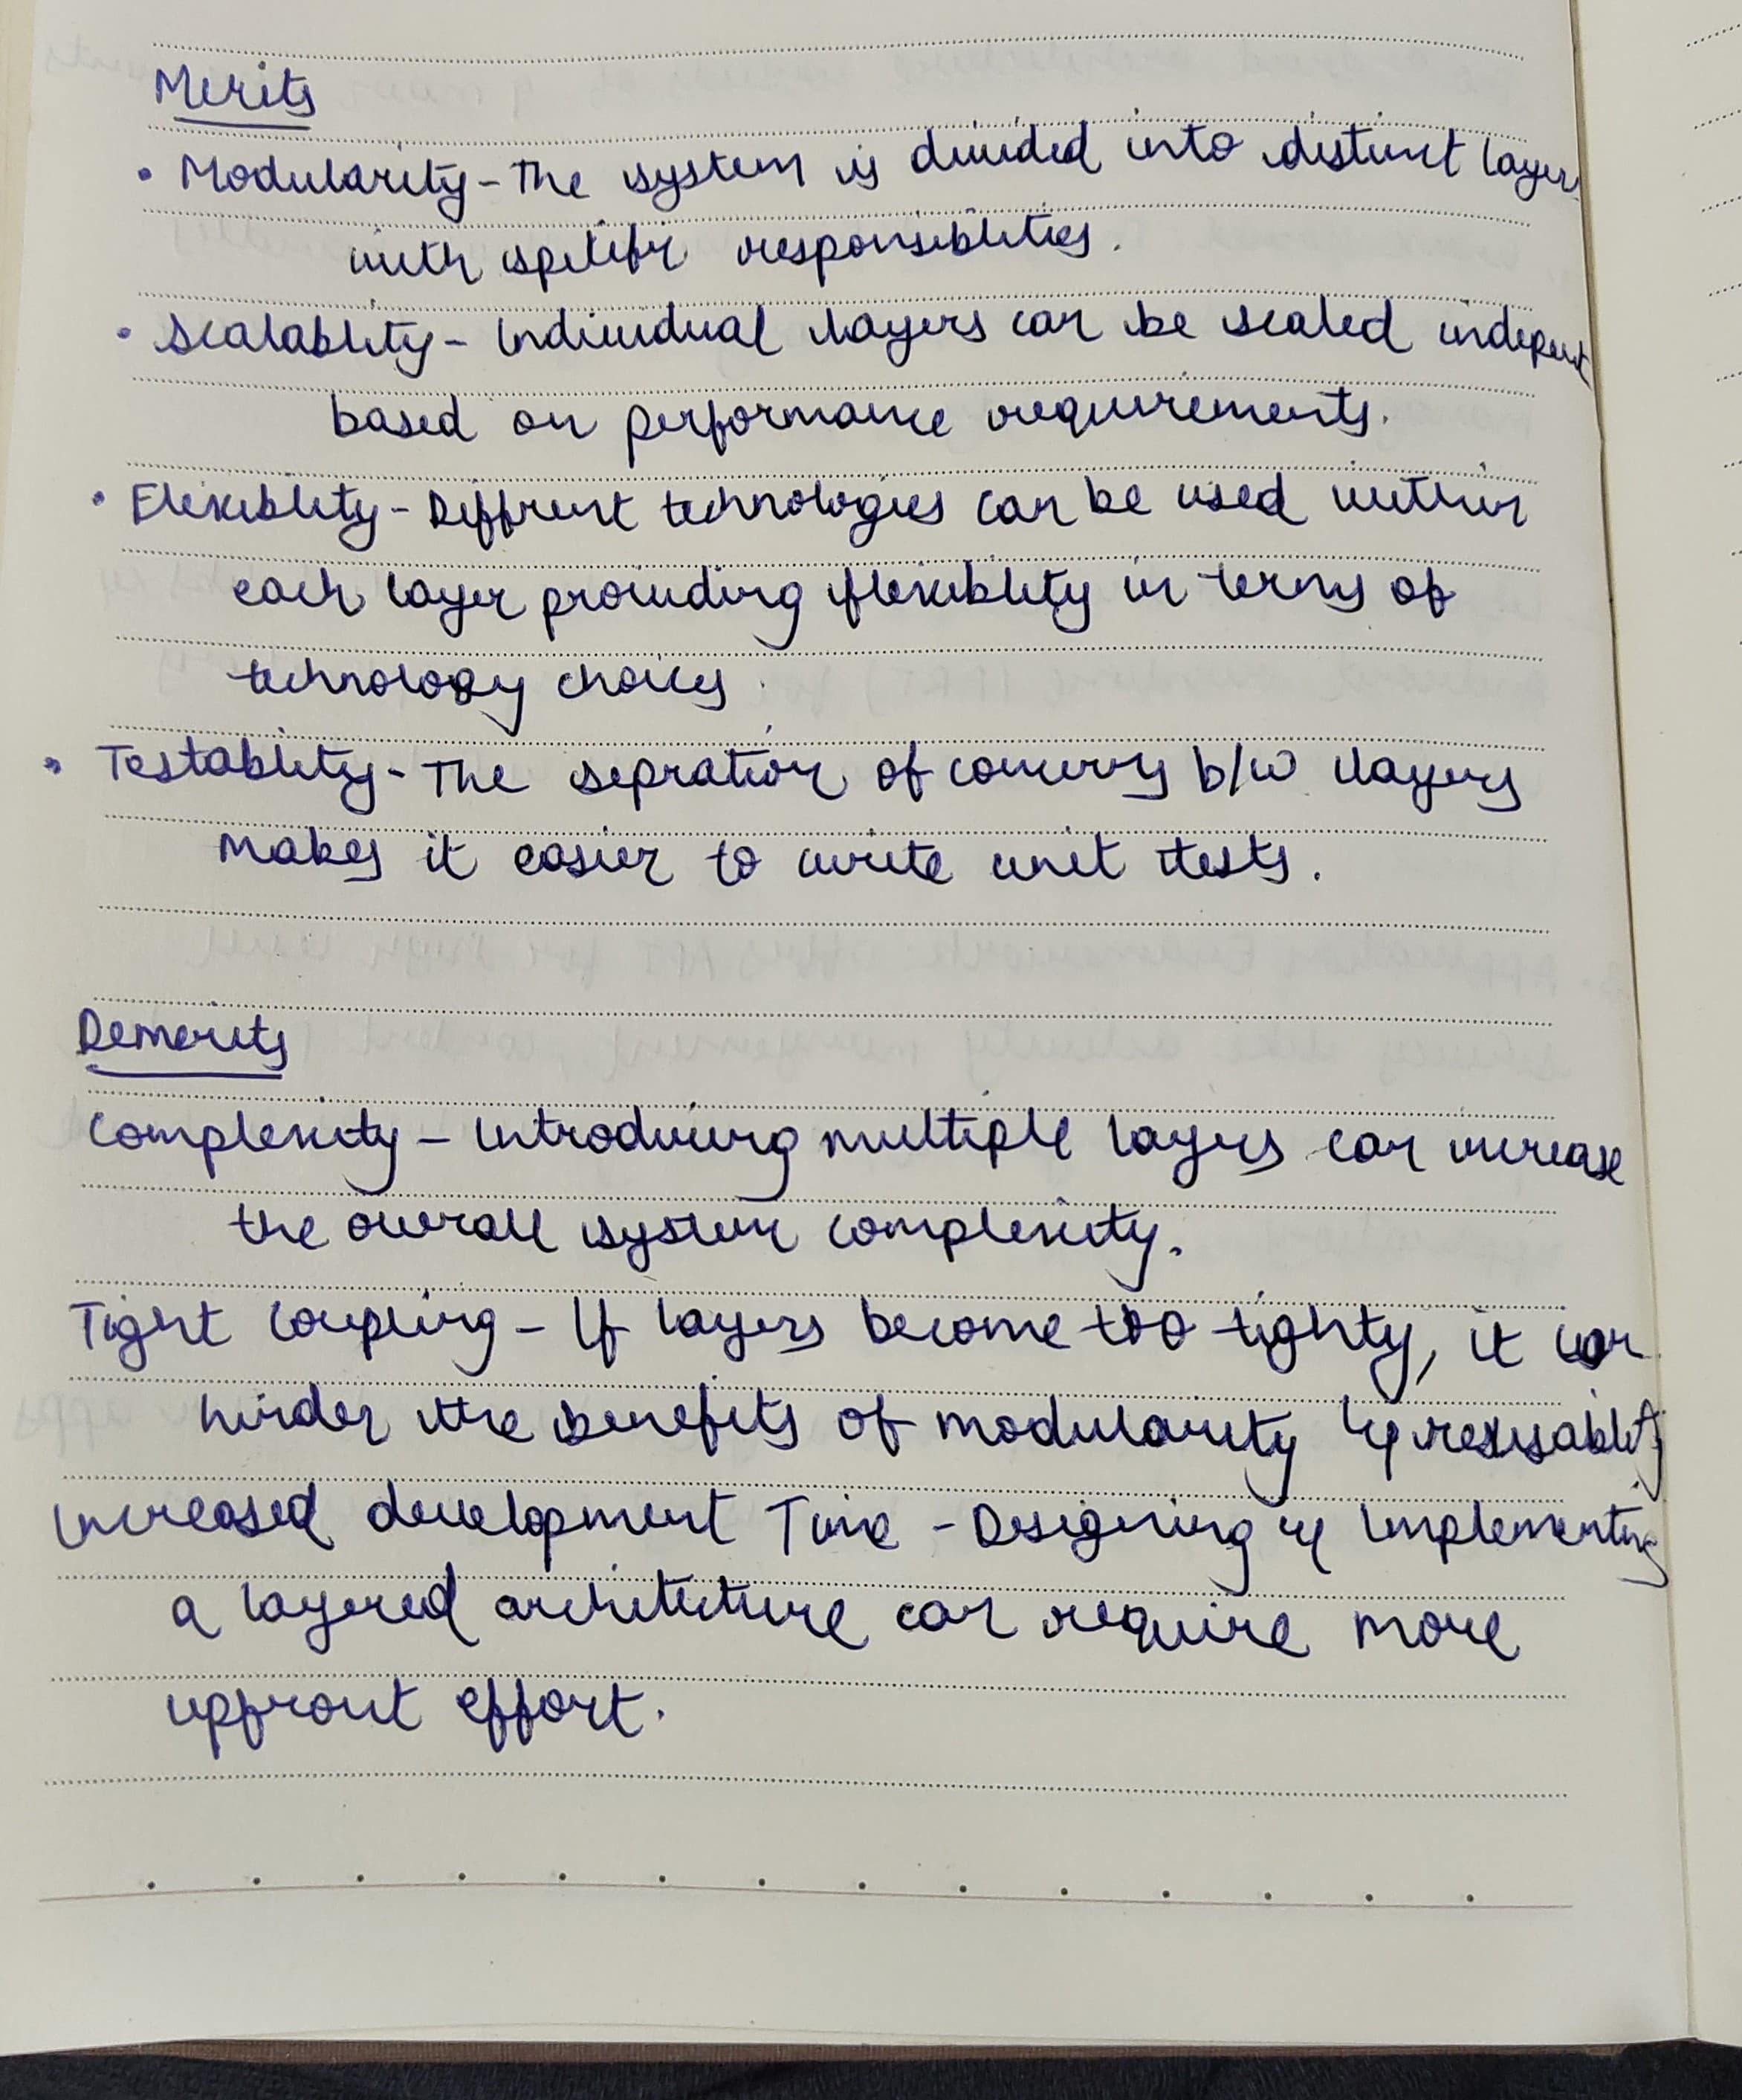 Merits
• Modularity - The system is divided into distinct layers
with specific responsiblities.
• Scalablity - Individual layers can be scaled indepent
based on performance requirements.
• Flexiblity - Diffrent technologies can be used within
each layer providing flexiblity in terms of
technology choices.
• Testablity - The sepration of concerns b/w layers
makes it easier to write unit tests.
Demerits
Complexity - Introducing multiple layers can increase
the overall system complexity.
Tight Coupling - If layers become too tighty, it can
hinder the benefits of modularity &
Increased development Time - Designing & Implementing
a layered architecture can require more
upfront effort.